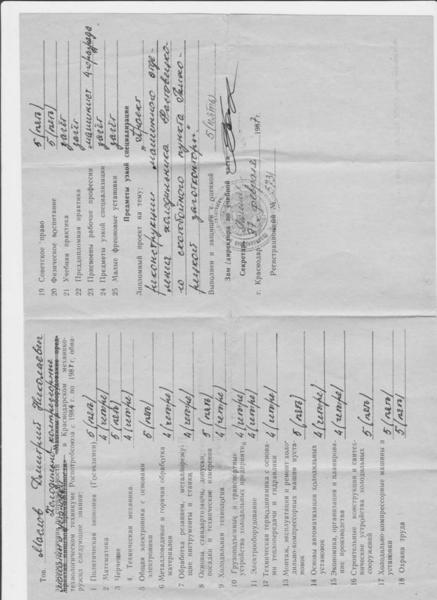 Тов. Маслов Дмитрий Николаевич
в Краснодарском механико-
технологическом техникуме Росглавпуб с 1984 г. по 1987 г. обна-
ружил следующие знания:
1 Политическая экономия (Госэкзамен) 5 (пять)
2 Математика 4 (четыре)
3 Черчение 5 (пять)
4 Техническая механика 4 (четыре)
5 Общая электротехника с основами электроники 5 (пять)
6 Металловедение и горячая обработка материалов 4 (четыре)
7 Обработка резанием, металлорежущие инструменты и станки 4 (четыре)
8 Основы стандартизации, допуски, посадки и технические измерения 5 (пять)
9 Холодильная технология 4 (четыре)
10 Грузоподъемные и транспортные устройства холодильных предприятий 4 (четыре)
11 Электрооборудование 4 (четыре)
12 Техническая термодинамика с основами теплопередачи и гидравлики 4 (четыре)
13 Монтаж, эксплуатация и ремонт холодильно-компрессорных машин установок 5 (пять)
14 Основы автоматизации холодильных установок 4 (четыре)
15 Экономика, организация и планирование производства 4 (четыре)
16 Строительные конструкции и сантехнические устройства холодильных сооружений 5 (пять)
17 Холодильно-компрессорные машины и установки 5 (пять)
18 Охрана труда 5 (пять)
19 Советское право 5 (пять)
20 Физическое воспитание 5 (пять)
21 Учебная практика зачёт
22 Преддипломная практика зачёт
23 Присвоены рабочие профессии машинист 4 разряда
24 Предметы узкой специализации зачёт
25 Малые фреоновые установки зачёт
Предметы узкой специализации
Дипломный проект на тему: „Проект
реконструкции машинного отде-
ления холодильника
го скотобойного пункта
рецкой заготконторы“
Выполнен и защищен с оценкой 5 (пять)
Зам. директора по учебной части
Секретарь
г. Краснодар февраля 1987 г.
Регистрационный №